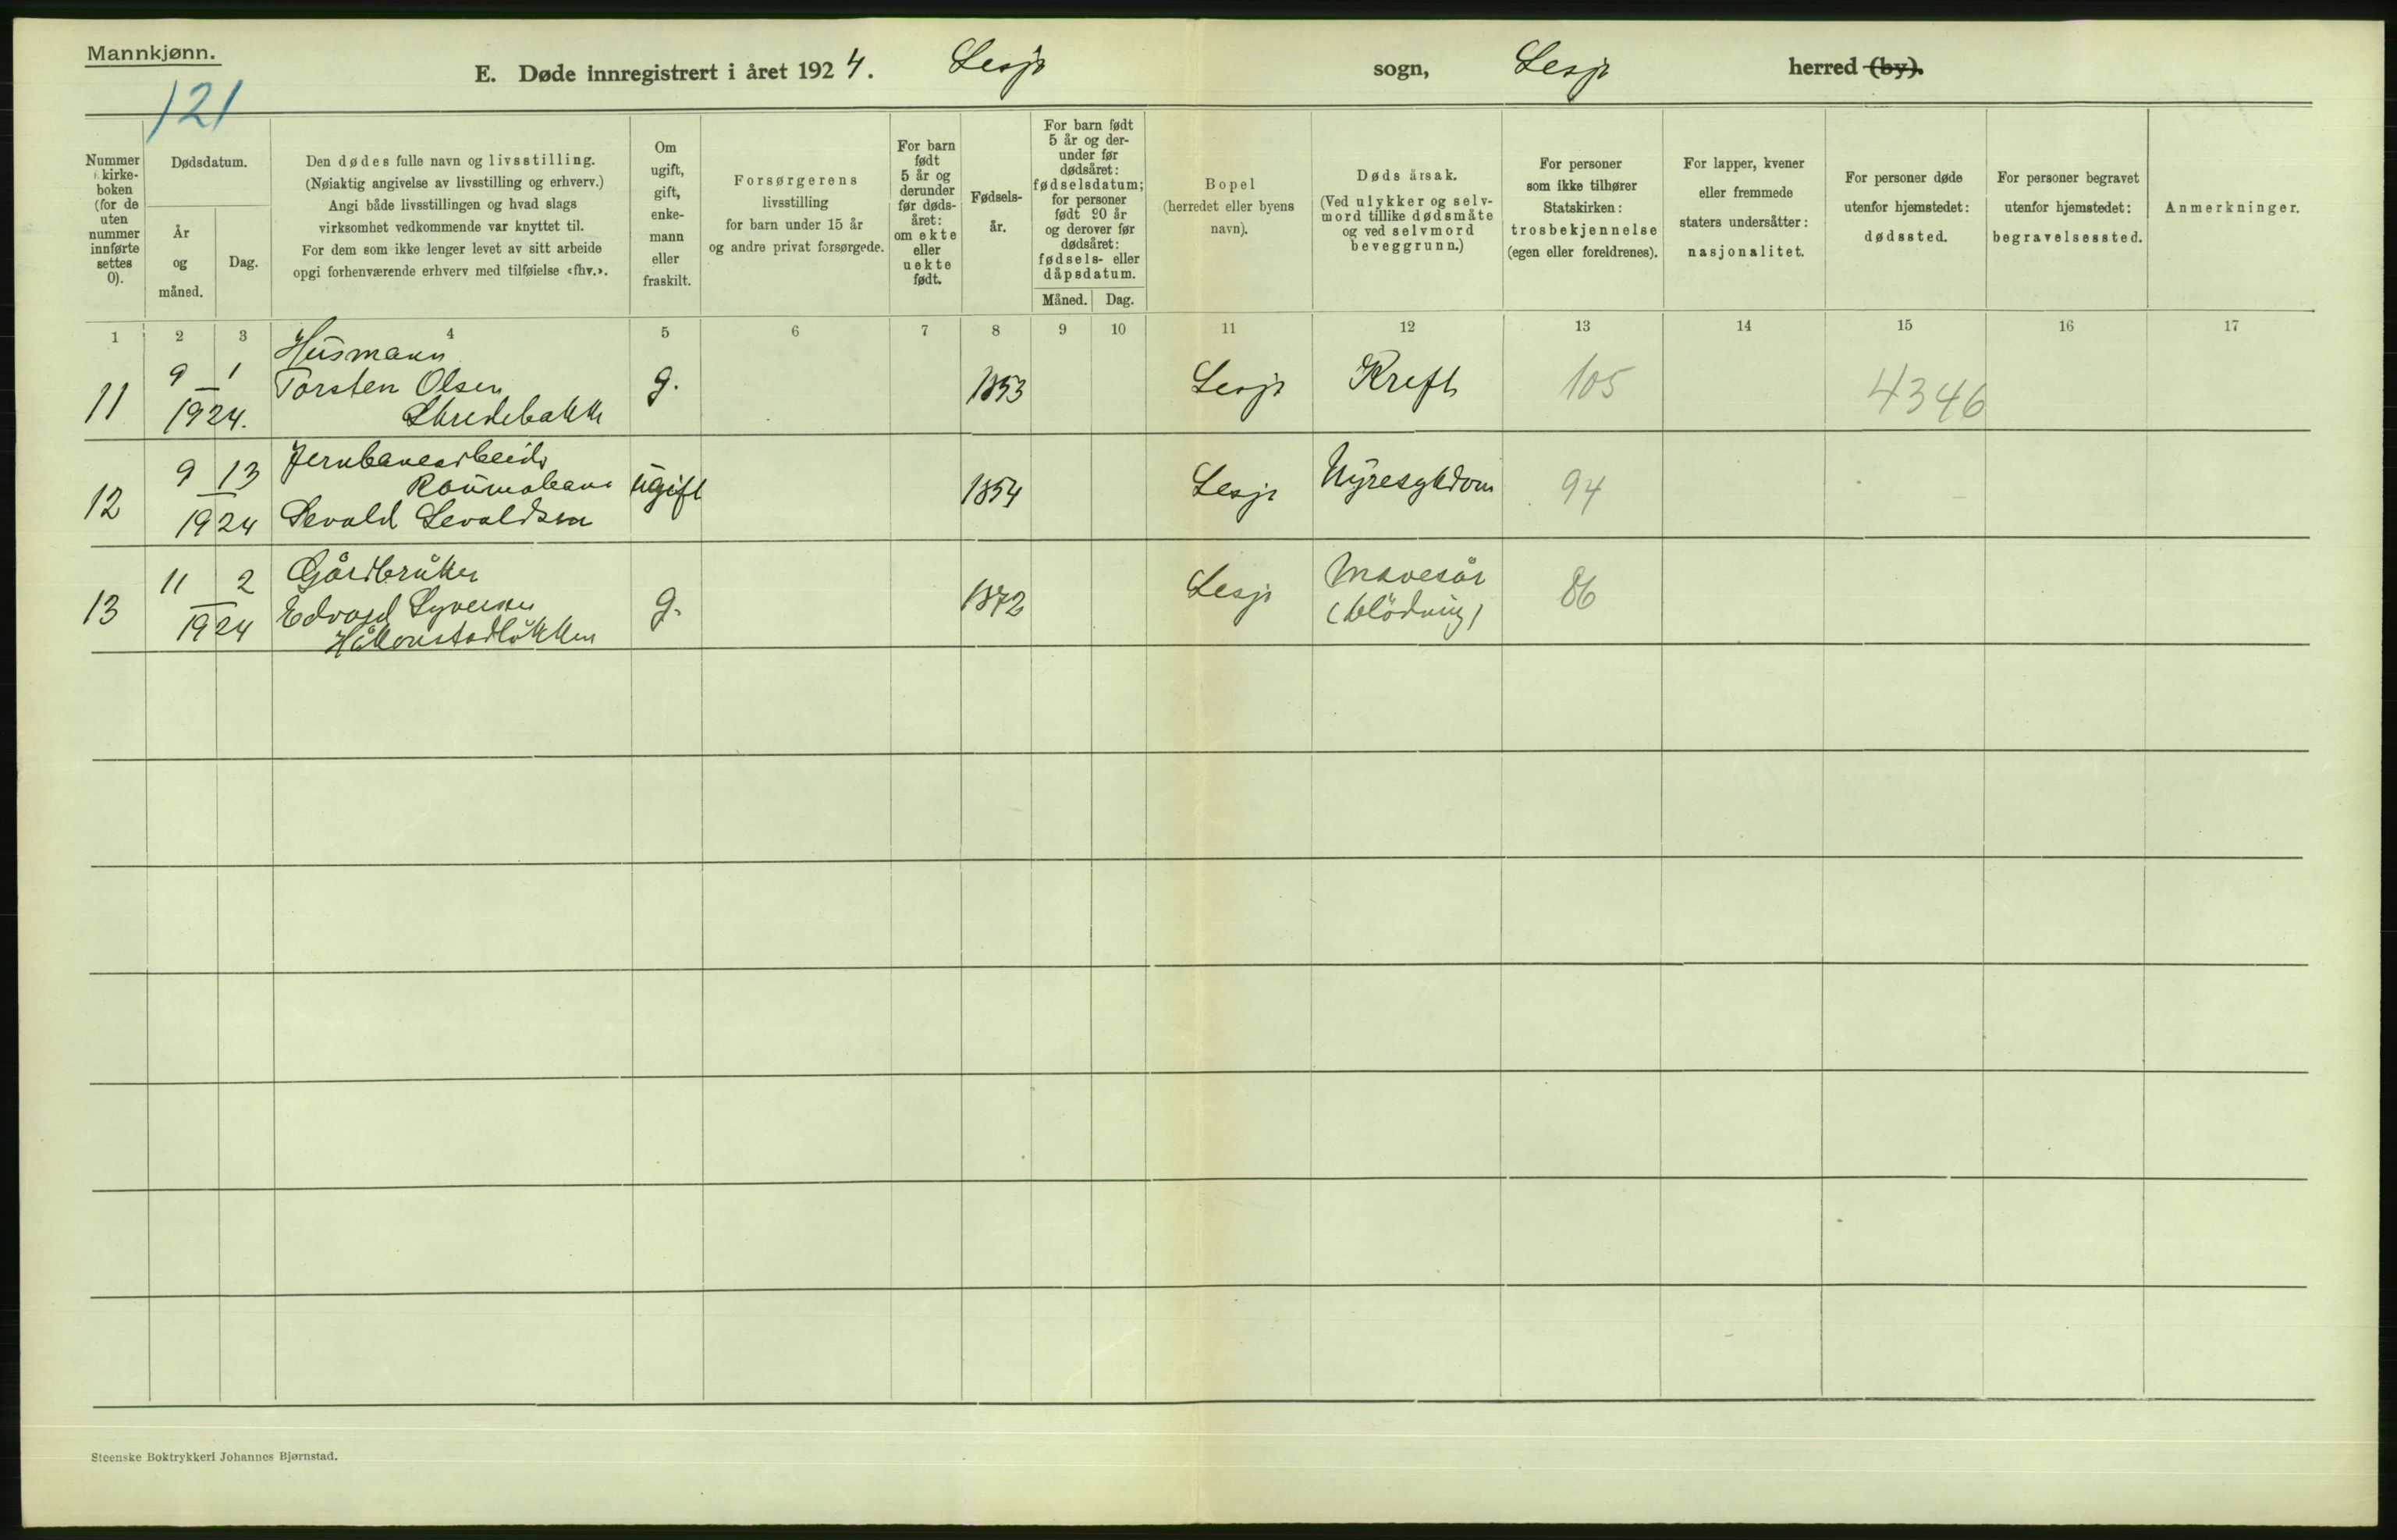 Mannkjønn.
121
E. Døde innregistrert i året 1924. Lesje sogn, Lesje herred (by).
Nummer i kirke-
boken
(for de
uten
nummer
innførte
settes
0).
Dødsdatum.
År
og
måned.
Dag.
Den dødes fulle navn og livsstilling.
(Nøiaktig angivelse av livsstilling og erhverv.)
Angi både livsstillingen og hvad slags
virksomhet vedkommende var knyttet til.
For dem som ikke lenger levet av sitt arbeide
opgi forhenværende erhverv med tilføielse «fhv.».
Om
ugift,
gift,
enke-
mann
eller
fraskilt.
Forsørgerens
livsstilling
for barn under 15 år
og andre privat forsørgede.
For barn
født
5 år og
derunder
før døds-
året:
om ekte
eller
uekte
født.
Fødsels-
år.
For barn født
5 år og der-
under før
dødsåret:
fødselsdatum;
for personer
født 90 år
og derover før
dødsåret:
fødsels- eller
dåpsdatum.
Måned. Dag.
Bopel
(herredet eller byens
navn).
Døds årsak.
(Ved ulykker og selv-
mord tillike dødsmåte
og ved selvmord
beveggrunn.)
For personer
som ikke tilhører
Statskirken:
trosbekjennelse
(egen eller foreldrenes).
For lapper, kvener
eller fremmede
staters undersåtter:
nasjonalitet.
For personer døde
utenfor hjemstedet:
dødssted.
For personer begravet
utenfor hjemstedet:
begravelsessted.
Anmerkninger.
1 2 3 4 5 6 7 8 9 10 11 12 13 14 15 16 17
Husmann
9 1 Torsten Olsen g. 1853 Lesje Kreft 105 4346
11 1924. Skredebakke
Jernbanearbeider
9 13 Raumabane ugift 1854 Lesje Nyresykdom 94
12 1924 Sevald Sevaldsen
11 2 Gårdbruker Lesje Mavesår
13 Edvard Syversen g. 1872 (blödning) 86
1924 Håkonstadløkken
Steenske Boktrykkeri Johannes Bjørnstad.